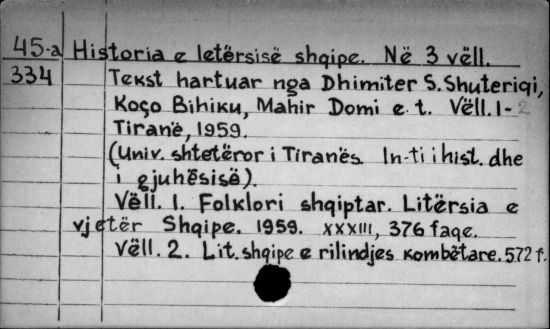 45-a Historia e letërsisë shqipe. Në 3 vëll.
334 Tekst hartuar nga Dhimiter S. Shuteriqi,
Koço Bihiku, Mahir Domi e t. Vëll. 1-2
Tiranë, 1959.
(Univ. shtetëror i Tiranës. In-ti i hist. dhe
i gjuhësisë).
Vëll. 1. Folklori shqiptar. Litërsia e
vjetër Shqipe. 1959. XXXIII, 376 faqe.
Vëll. 2. Lit. shqipe e rilindjes kombëtare. 572 f.